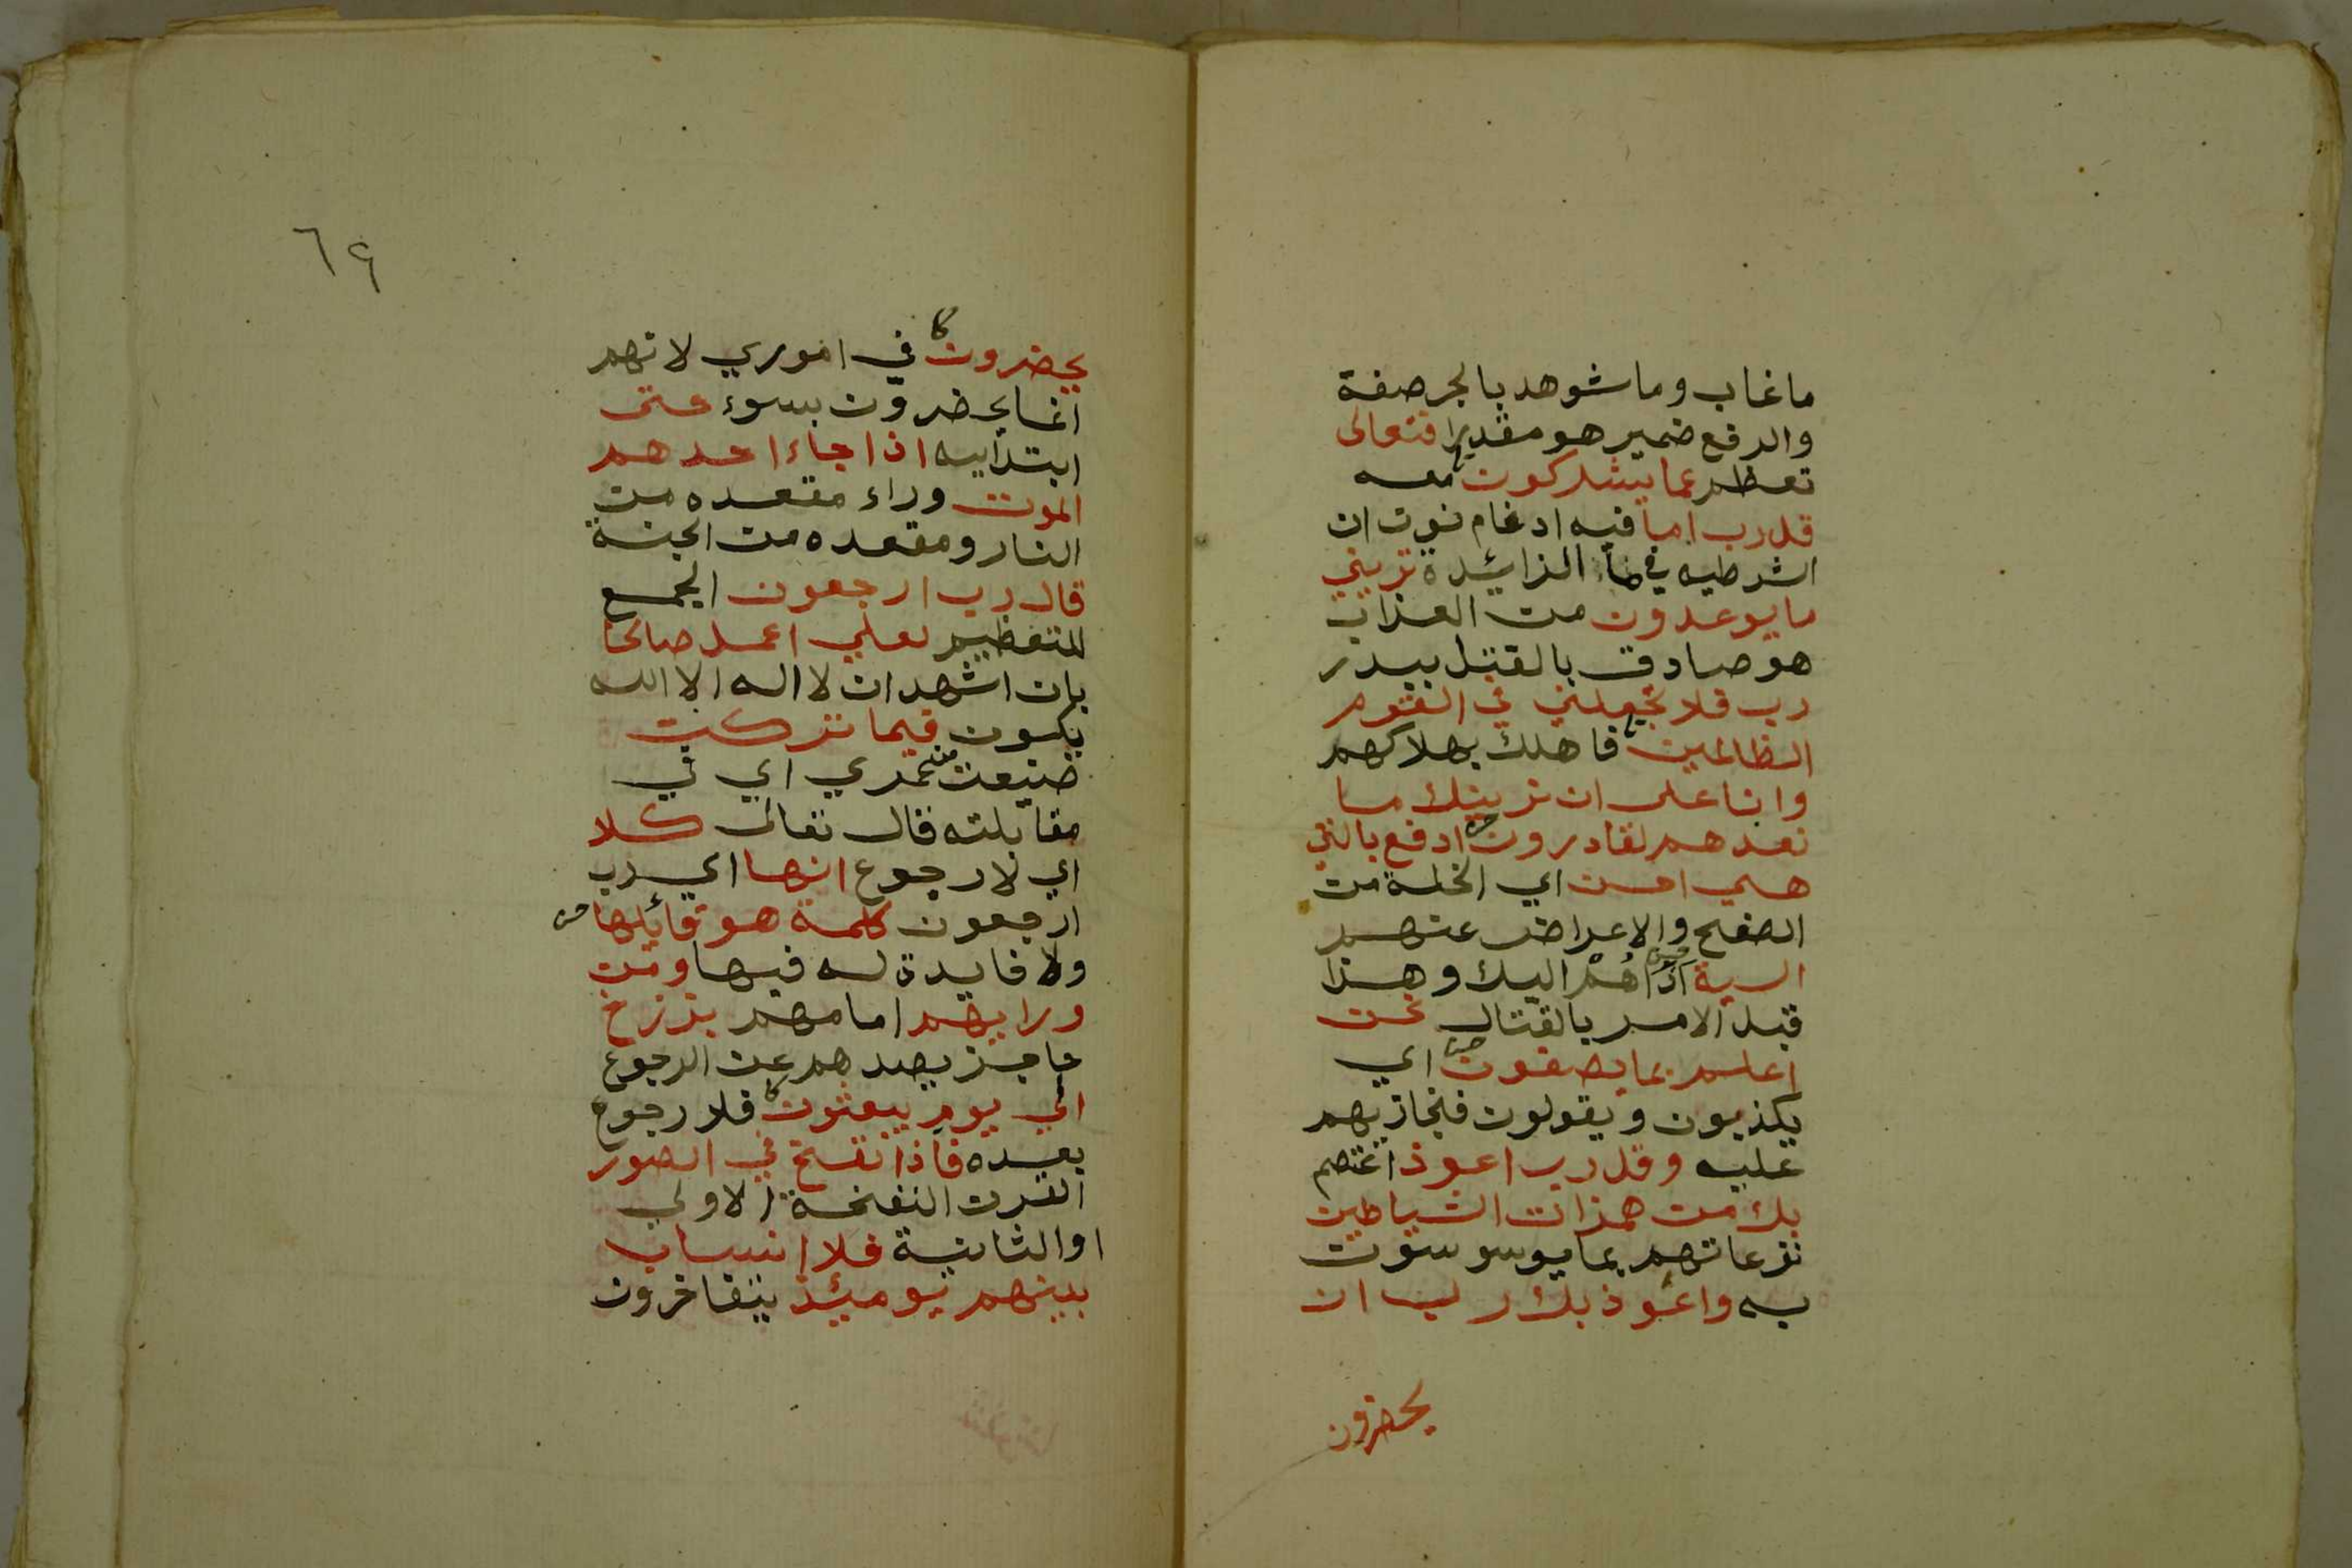 ما غاب وما شوهد بالجر صفة
والرفع ضمير هو مقدرا فتعالى
تعظم عما يشركون معه
قل رب اما فيه ادغام نون ان
الشرطيه في ما الزائدة تريني
ما يوعدون من العذاب
هو صادق بالقتل ببدر
رب فلا تجعلني في القوم
الظالمين فاهلك بهلاكهم
وانا على ان نرينك ما
نعدهم لقادرون ادفع بالتي
هي احسن اي الخلة من
الصفح والاعراض عنهم
السية اذاهم اليك وهذا
قبل الامر بالقتال نحن
اعلم بما يصفون اي
يكذبون ويقولون فنجازيهم
عليه وقل رب اعوذ اعتصم
بك من همزات الشياطين
نزعاتهم بما يوسوسون
به واعوذ بك رب ان
يحضرون
٦٤
يحضرون في اموري لانهم
انما يحضرون بسوء حتى
ابتداييه اذا جاء احدهم
الموت وراء مقعده من
النار ومقعده من الجنة
قال رب ارجعون الجمع
للتعظيم لعلي اعمل صالحا
بان اشهد ان لا اله الا الله
يكون فيما تركت
ضيعت من عمري اي في
مقابلته قال تعالى كلا
اي لا رجوع انها اي رب
ارجعون كلمة هو قائلها
ولا فايدة له فيها ومن
ورايهم امامهم برزخ
حاجز يصدهم عن الرجوع
الي يوم يبعثون فلا رجوع
بعده فاذا نفخ في الصور
القرن النفخة الاولي
او الثانية فلا انساب
بينهم يومئذ يتفاخرون